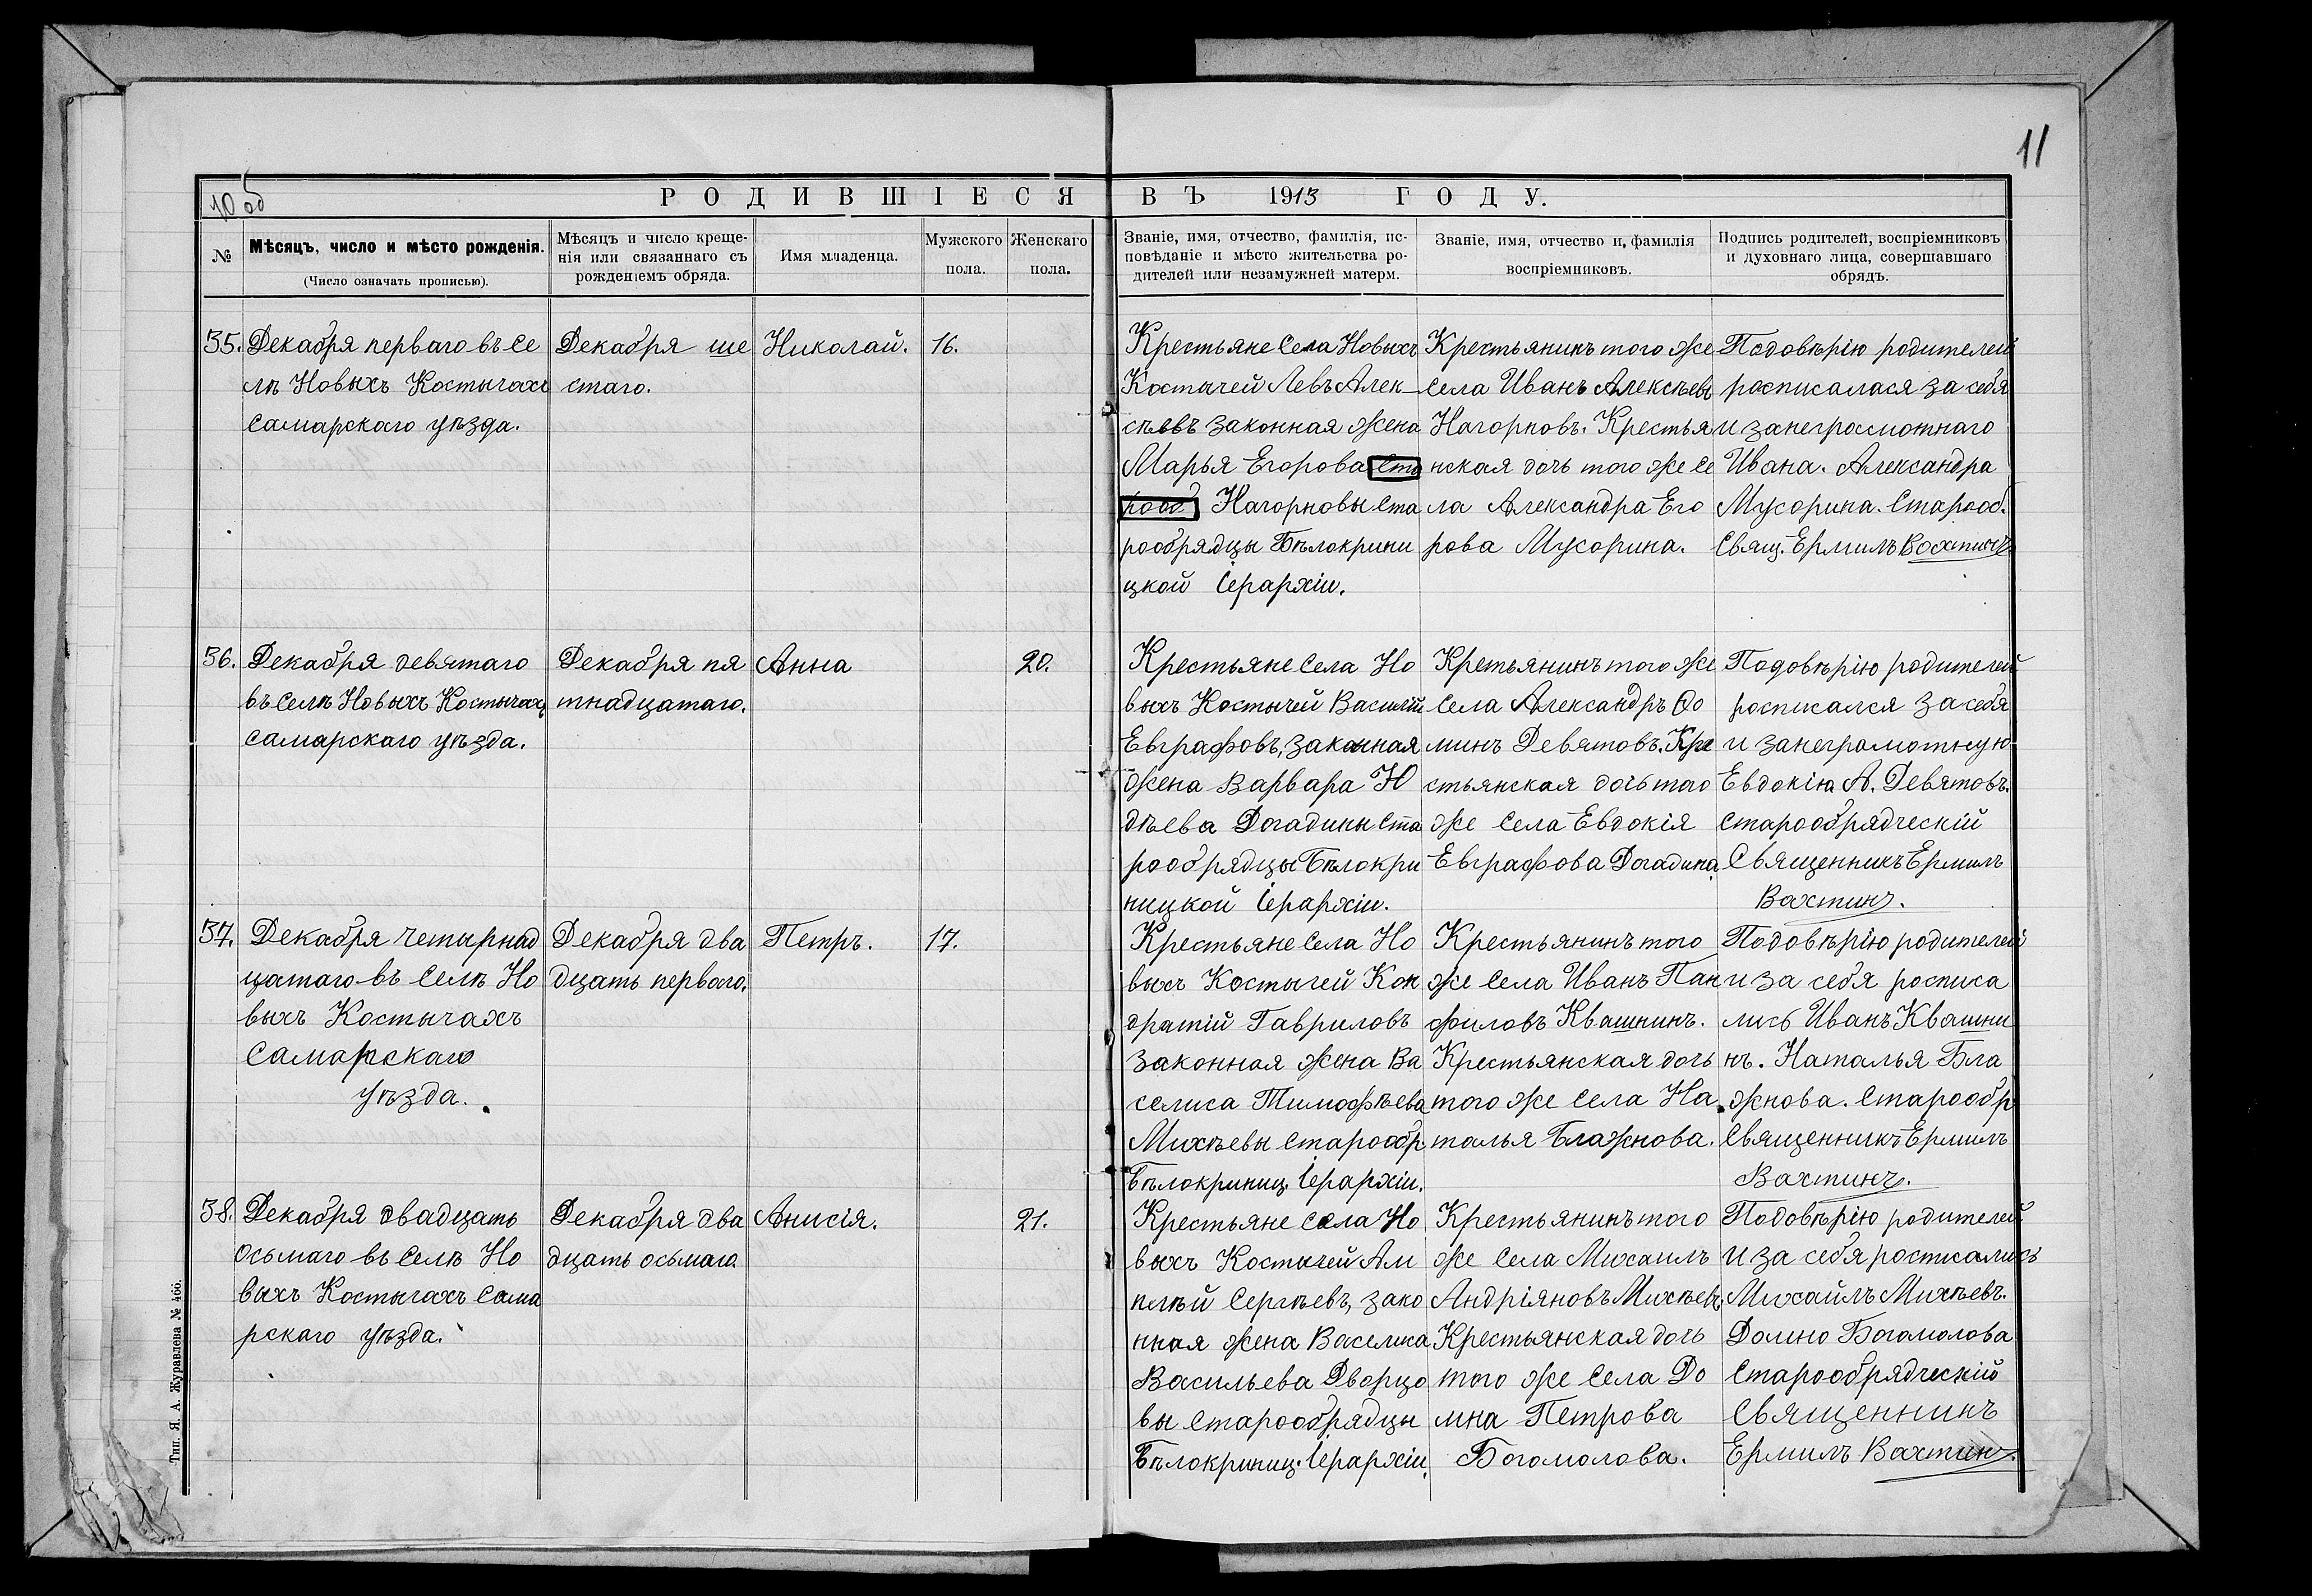 11
10 об
РОДИВШІЕСЯ ВЪ 1913 ГОДУ.
№
Мѣсяцъ, число и мѣсто рожденія.
(Число означать прописью).
Мѣсяцъ и число креще-
нія или связаннаго съ
рожденіемъ обряда.
Имя младенца.
Мужского
пола.
Женскаго
пола.
Званіе, имя, отчество, фамилія, ис-
повѣданіе и мѣсто жительства ро-
дителей или незамужней матерм.
Званіе, имя, отчество и, фамилія
воспріемниковъ.
Подпись родителей, воспріемниковъ
и духовнаго лица, совершавшаго
обрядъ.
35.
Декабря перваго въ Се
лѣ Новыхъ Костычахъ
Самарскаго уѣзда.
Декабря ше
стаго.
Николай.
16.
Крестьяне Села Новыхъ
Костычей Левъ Алек-
сѣевъ законная жена
Марья Егорова Ста
рооб. Нагорновы Ста
рообрядцы Бѣлокрини
цкой Іерархіи.
Крестьянинъ того же
Села Иванъ Алексѣевъ
Нагорновъ. Крестья
нская дочь того же Се
ла Александра Его
рова Мусорина.
Подовѣрію родителей
росписалася за себя
и занеграмотнаго
Ивана. Александра
Мусорина. Старооб.
Свящ. Ермилъ Вахтинъ
36.
Декабря девятаго
въ Селѣ Новыхъ Костычахъ
Самарскаго уѣзда.
Декабря пя
тнадцатаго.
Анна
20.
Крестьяне Села Но
выхъ Костычей Василій
Евграфовъ, законная
жена Варвара Ю
дѣева Догадины Ста
рообрядцы Бѣлокри
ницкой Іерархіи.
Кретьянинъ того же
Села Александръ Ѳо
минъ Девятовъ. Кре
стьянская дочь того
же Села Евдокія
Евграфова Догадина.
Подовѣрію родителей
росписался за себя
и занеграмотную
Евдокію А. Девятовъ.
Старообрядческій
Священникъ Ермилъ
Вахтинъ.
37.
Декабря четырнад
цатаго въ Селѣ Но
выхъ Костычахъ
Самарскаго
уѣзда.
Декабря два
дцать перваго.
Петръ.
17.
Крестьяне Села Но
выхъ Костычей Кон
дратій Гавриловъ
законная жена Ва
селиса Тимофѣева
Михѣевы Старообр.
Бѣлокриниц. Іерархіи.
Крестьянинъ того
же Села Иванъ Пан
филовъ Квашнинъ.
Крестьянская дочь
того же Села На
талья Блажнова.
Подовѣрію родителей
и за себя росписа
лись Иванъ Квашни
нъ. Наталья Бла
жнова. Старообр
Священникъ Ермилъ
Вахтинъ.
38.
Декабря двадцать
осьмаго въ Селѣ Но
выхъ Костычахъ Сама
рскаго уѣзда.
Декабря два
дцать осьмаго.
Анисія.
21.
Крестьяне Села Но
выхъ Костычей Ам
плѣй Сергѣевъ, зако
нная жена Васелиса
Васильева Дворцо
вы Старообрядцы
Бѣлокриниц. Іерархіи.
Крестьянинъ того
же Села Михаилъ
Андріяновъ Михѣевъ.
Крестьянская дочь
того же Села До
мна Петрова
Богомолова.
Подовѣрію родителей
и за себя росписались
Михайлъ Михѣевъ.
Домно Богомолова
Старообрядческій
Священникъ
Ермилъ Вахтинъ.
Тип. Я. А. Журавлева № 466.